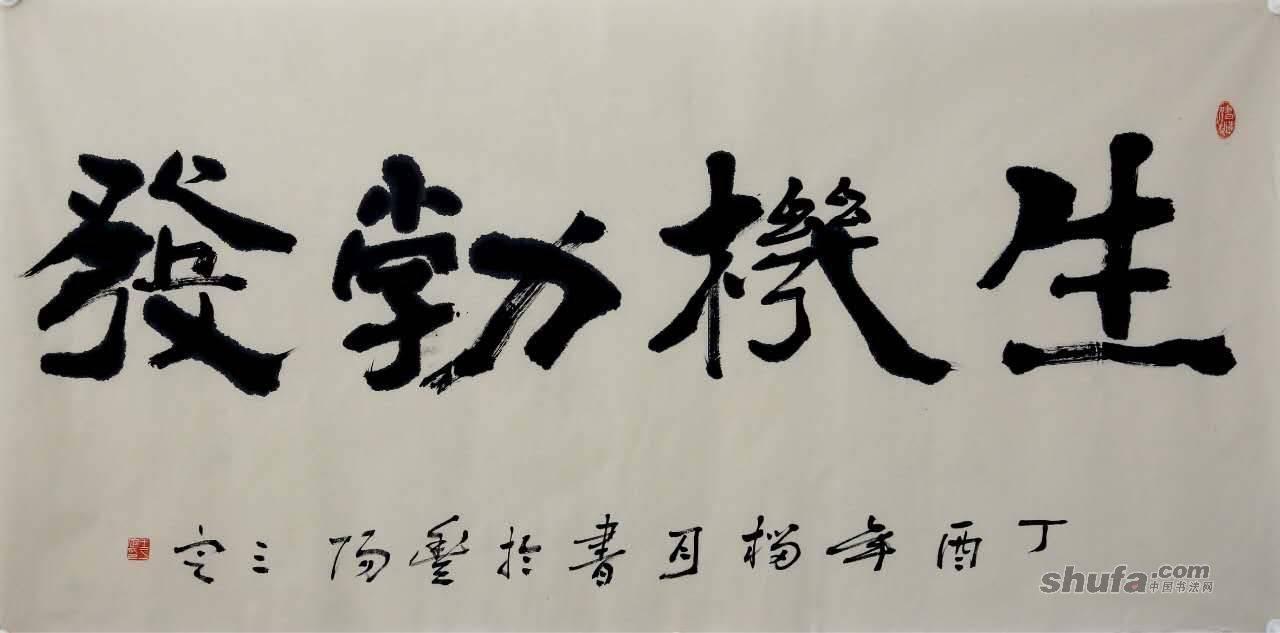 生機勃發
丁酉年榴月書於壑陽三空
shufa.com
中国书法网